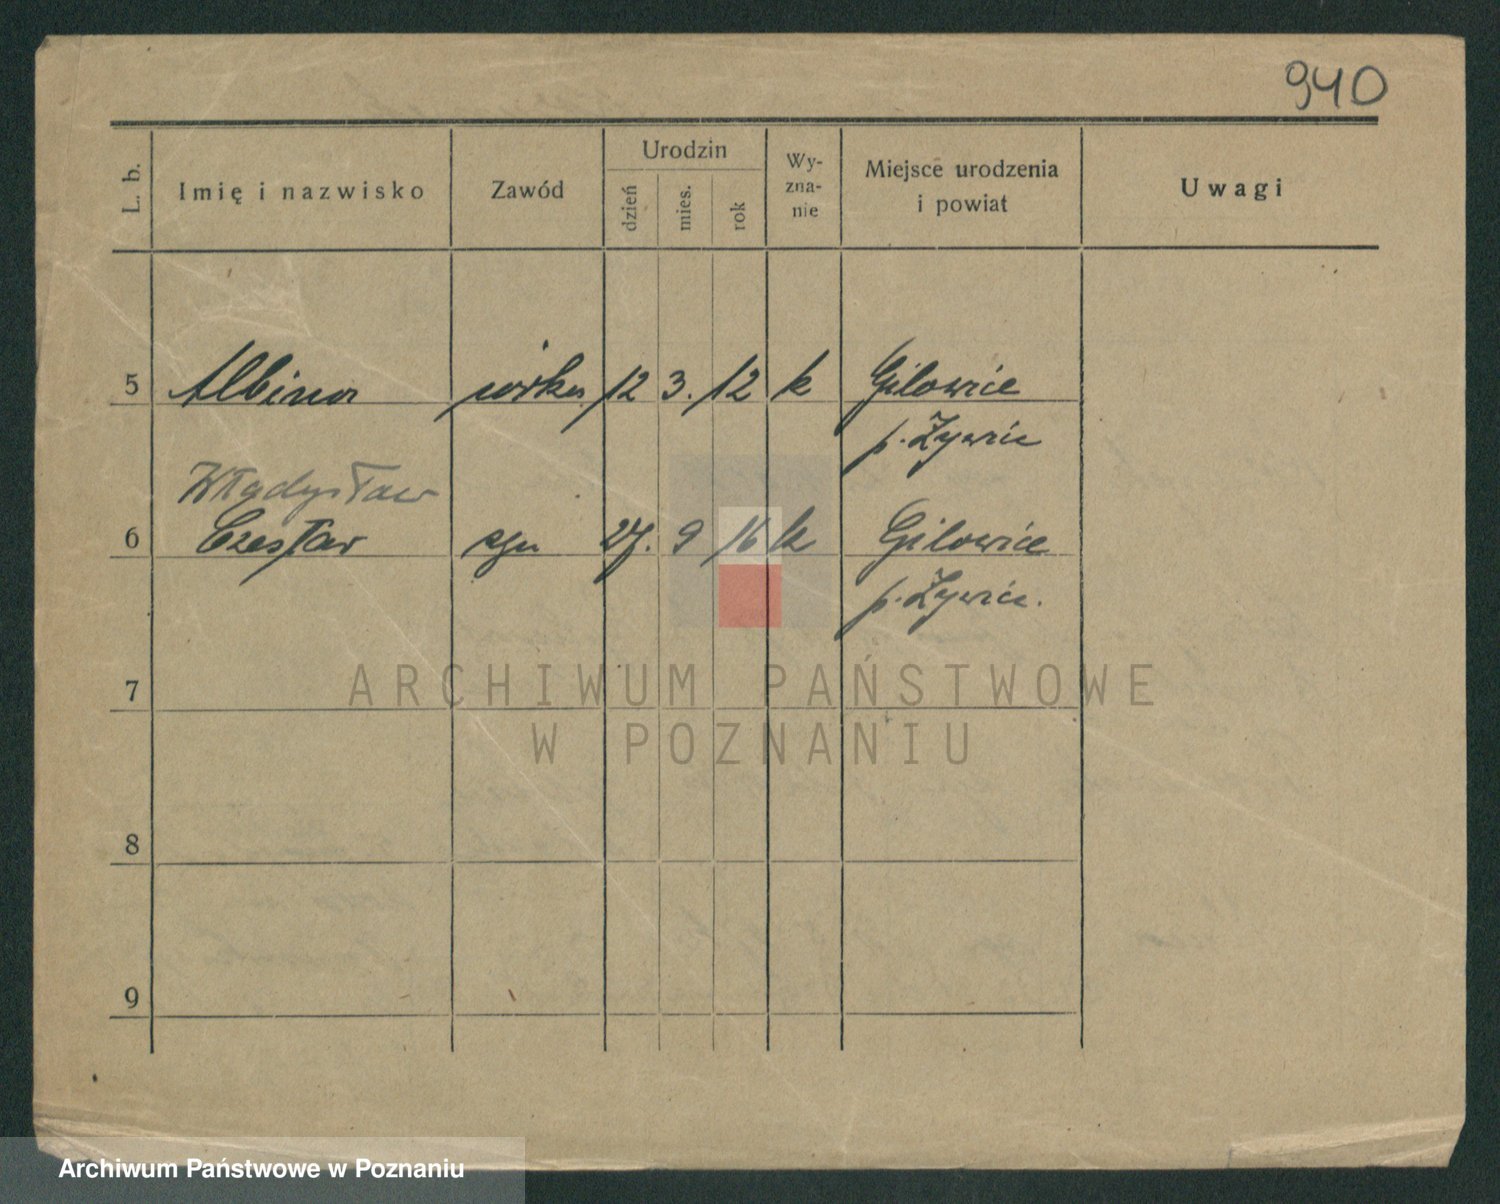 940
L. b. Imię i nazwisko Zawód Urodzin dzień mies. rok Wy-zna-nie Miejsce urodzenia i powiat Uwagi
5 Albina córka 12 3. 12 k Gilowice
p. Żywiec
Władysław
6 Czesław syn 27. 9 16 k Gilowice
p. Żywiec.
7
8
9
ARCHIWUM PAŃSTWOWE
W POZNANIU
Archiwum Państwowe w Poznaniu